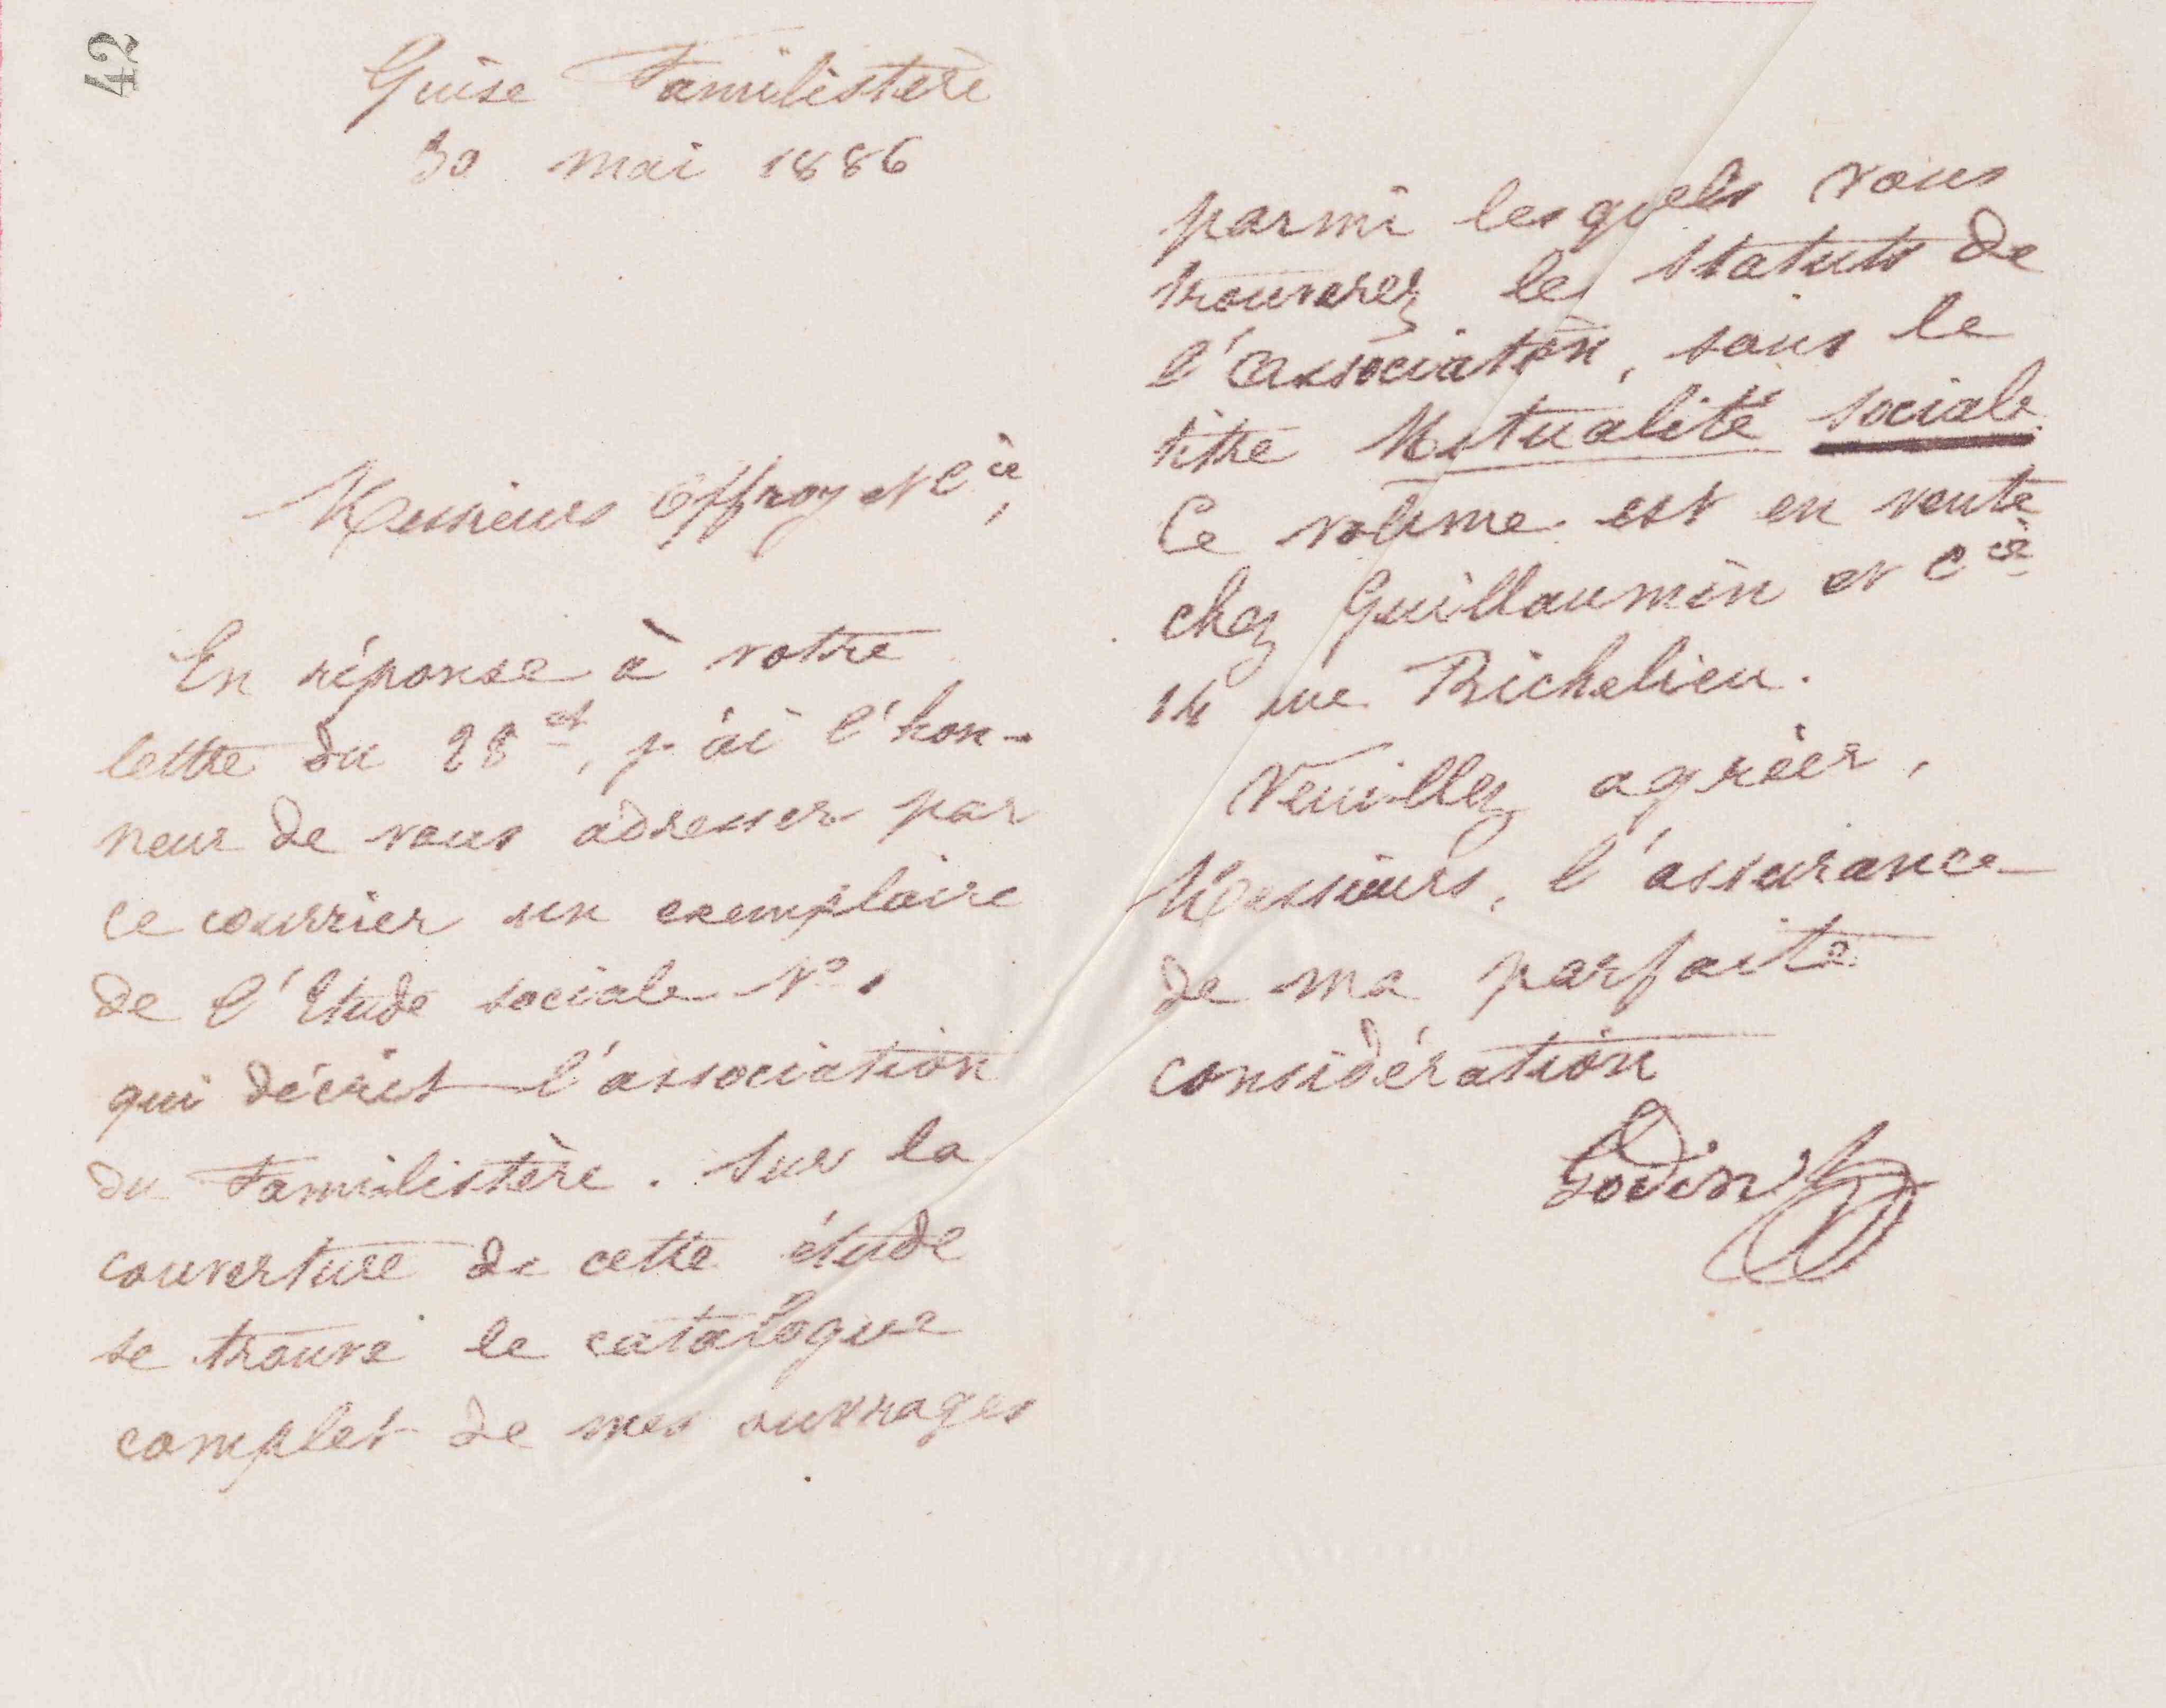 42
Guise Familistère
30 mai 1886
Messieurs Offroy et Cie,
En réponse à votre
lettre du 28 ct, j'ai l'hon-
neur de vous adresser par
ce courrier un exemplaire
de l'Etude sociale No 1
qui décrit l'association
du Familistère. Sur la
couverture de cette étude
se trouve le catalogue
complet de mes ouvrages
parmi lesquels vous
trouverez les statuts de
l'association, sous le
titre Mutualité sociale.
Ce volume est en vente
chez Guillaumin et Cie
14 rue Richelieu.
Veuillez agréer,
Messieurs, l'assurance
de ma parfaite
considération
Godin